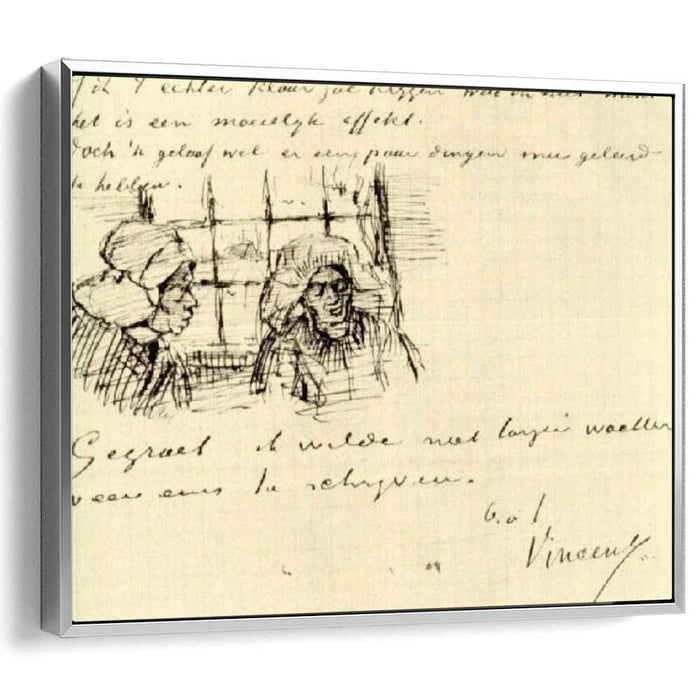 ik 't echter klaar zal krijgen weet ik niet want
het is een moeielijk effekt.
Doch 'k geloof wel er een paar dingen mee geleerd
te hebben.
Gegroet ik wilde niet langer wachten
weer eens te schrijven.
b. à t
Vincent